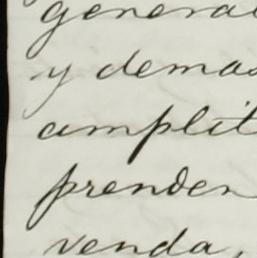 general
y demas
amplit
prenden
venda,